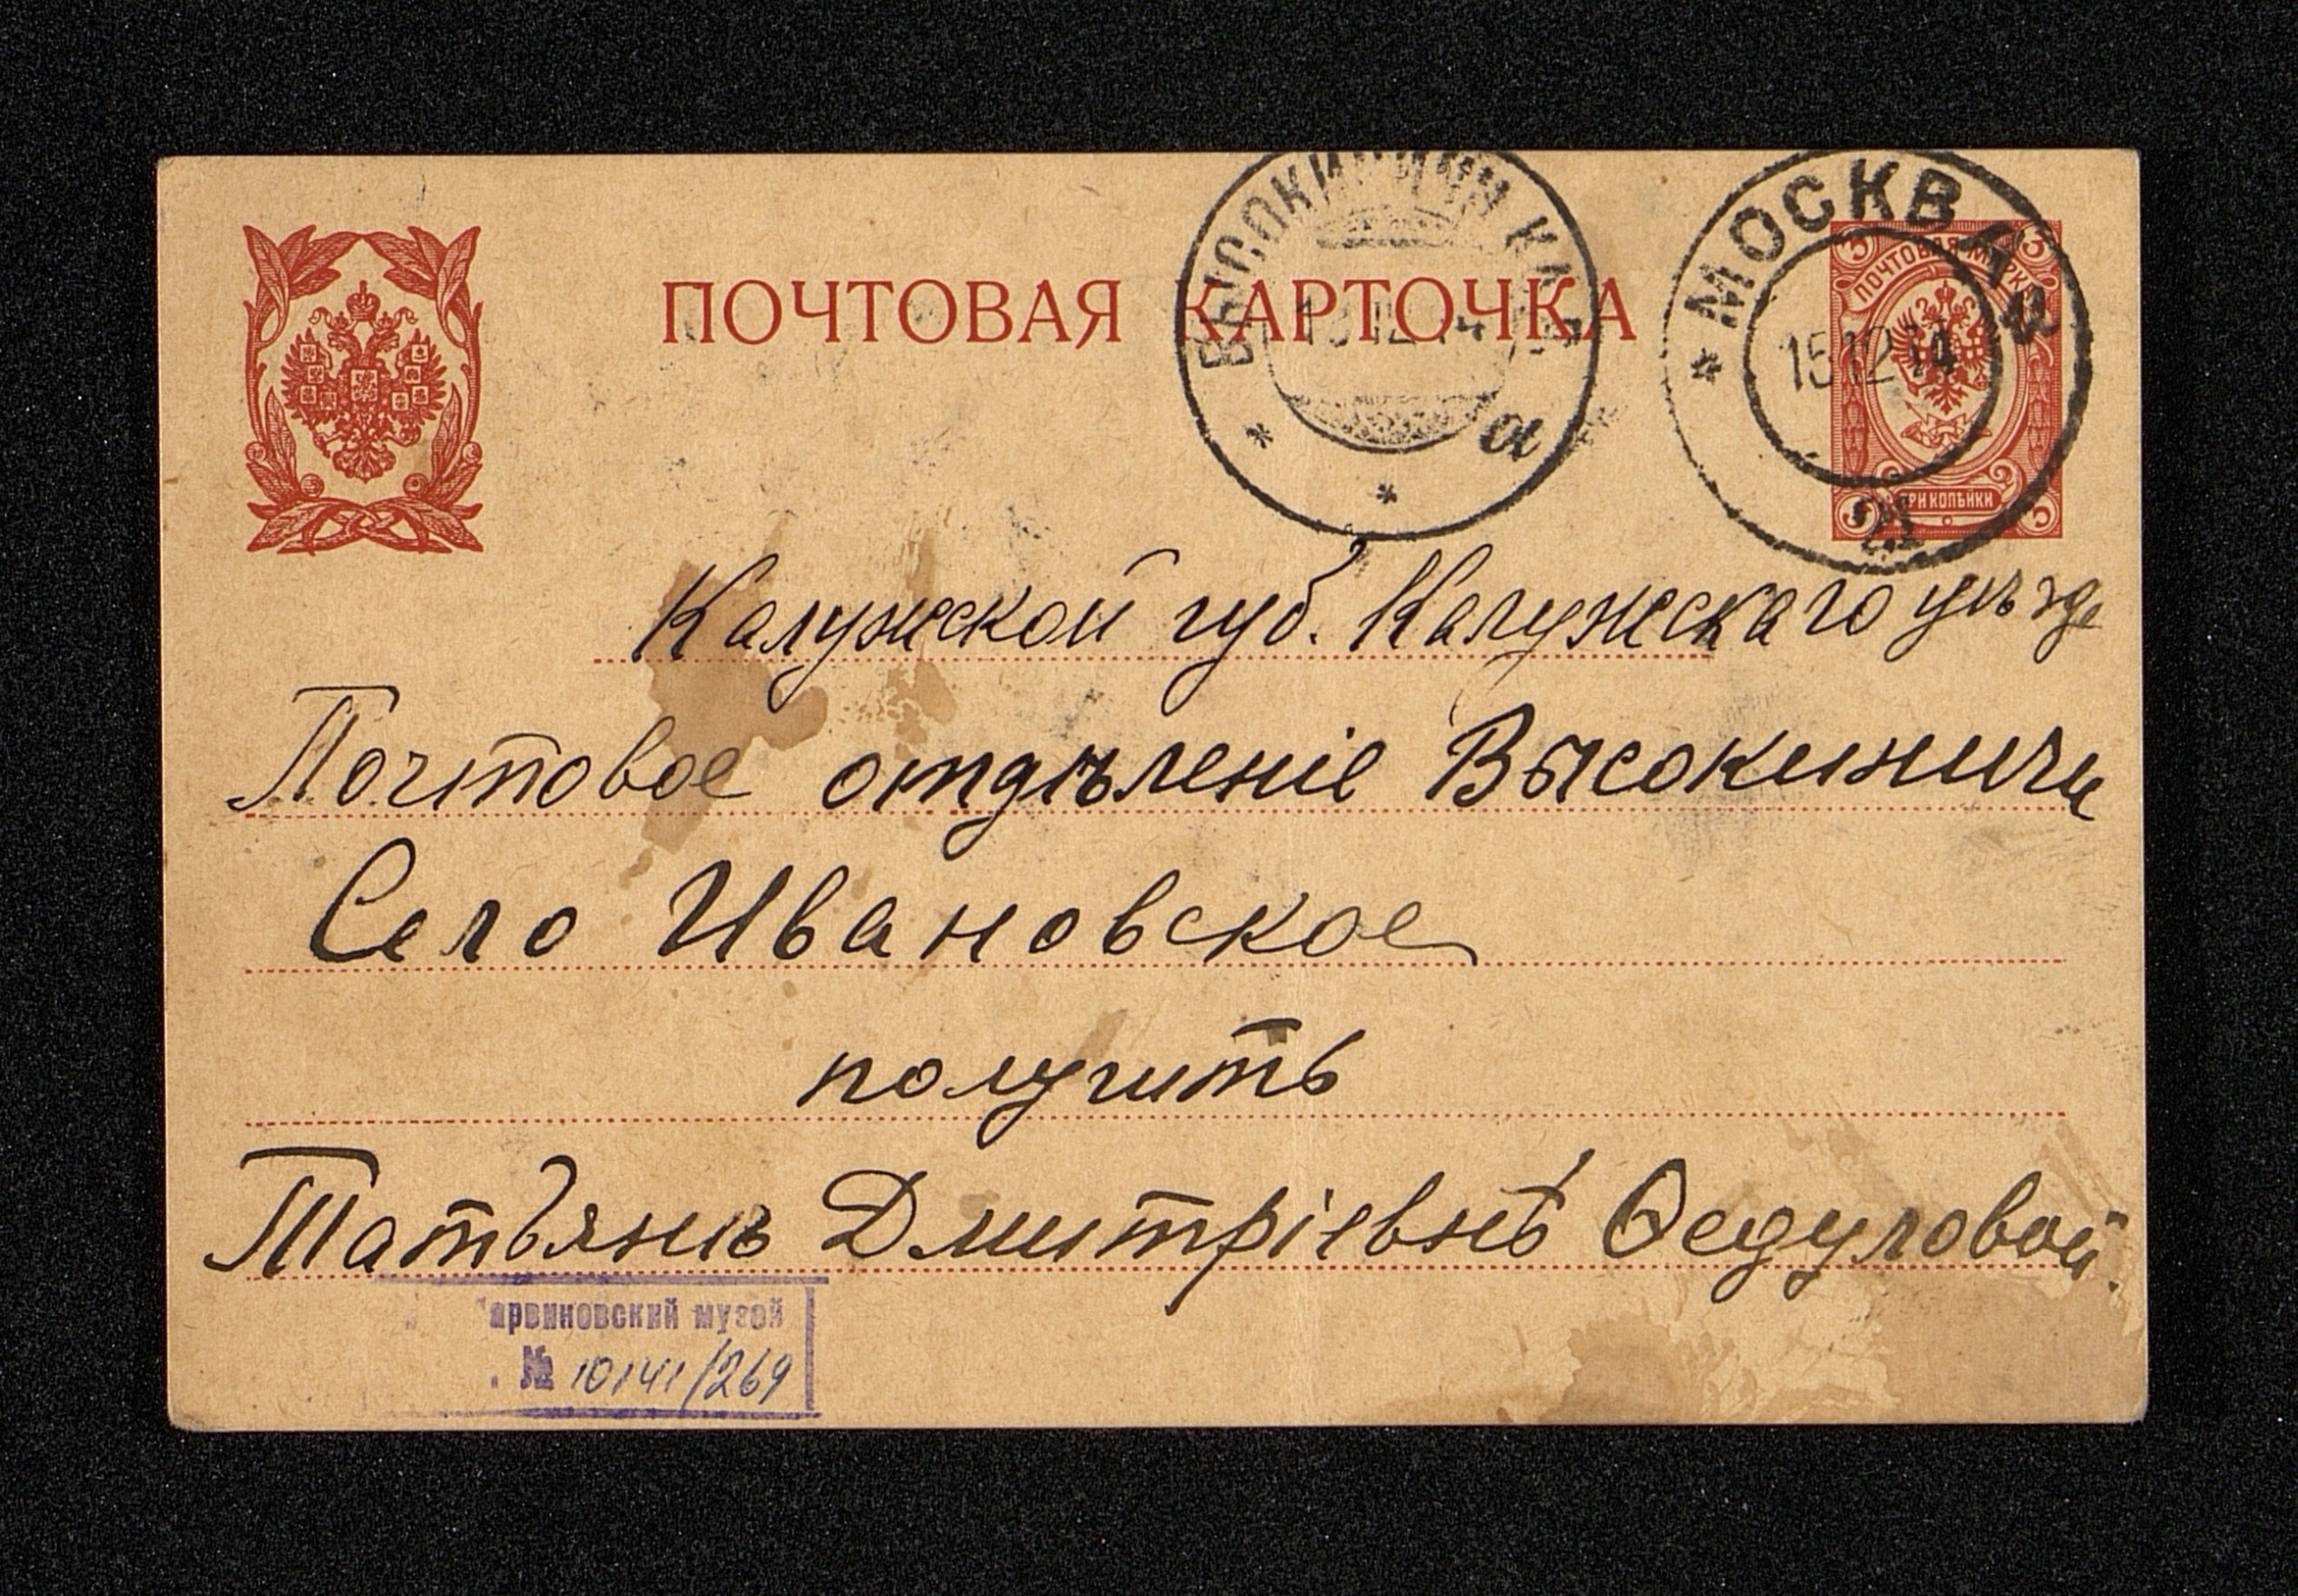 ПОЧТОВАЯ КАРТОЧКА
ВЫСОКИНИЧИ КАЛ.
12 14
а
МОСКВА
а
15 12 14
21
3 3
ПОЧТОВАЯ МАРКА
ТРИ КОПѢЙКИ
3 3
Калужской губ. Калужскаго уѣзда
Почтовое отдѣленіе Высокиничи
Село Ивановское
получить
Татьянѣ Дмитріевнѣ Ѳедуловой.
арвиновский музей
№ 10141/269